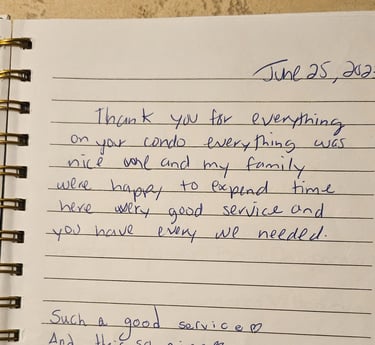 June 25, 202
Thank you for everything
on your condo everything was
nice and my family
were happy to expend time
here very good service and
you have every we needed.
Such a good service ♡
And this so